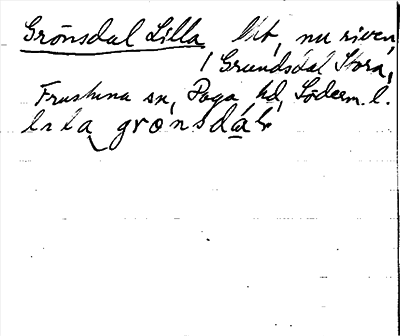 Grönsdal Lilla, lht, nu riven,
/ Grundsdal Stora,
Frustuna sn, Daga hd, Söderm. l.
lɩla gronsdal